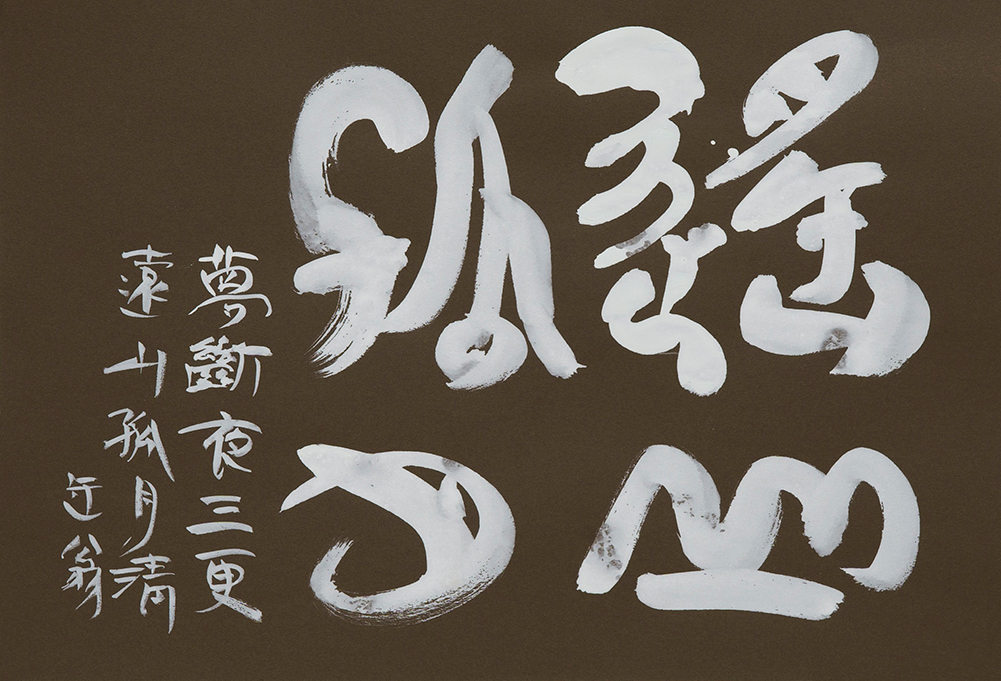 遙山
孤月
夢斷夜三更
遠山孤月清
迂翁